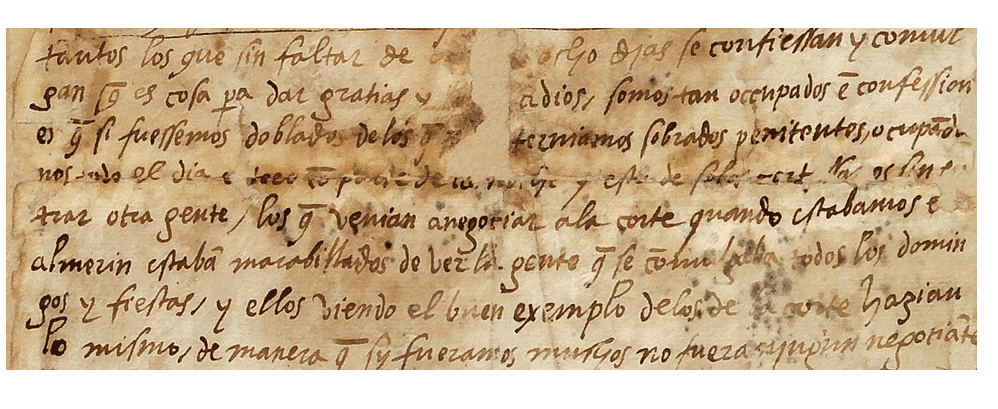 tantos los que sin faltar de ocho dias se confiessan y comul
gan q̃ es cosa pa dar gratias y adios, somos tan occupados ẽ confession
es q̃ si fuessemos doblados delos q̃ terniamos sobrados penitentes, ocupãdo
nos el dia e de y esto de sola sin en
trar otra gente, los q̃ venian a negociar ala corte quando estabamos e
almerin estabã marabillados de ver la gente q̃ se comulgaba todos los domin
gos y fiestas, y ellos viendo el buen exemplo delos de la corte hazian
lo mismo, de manera q̃ sy fueramos muchos no fuera negociãte